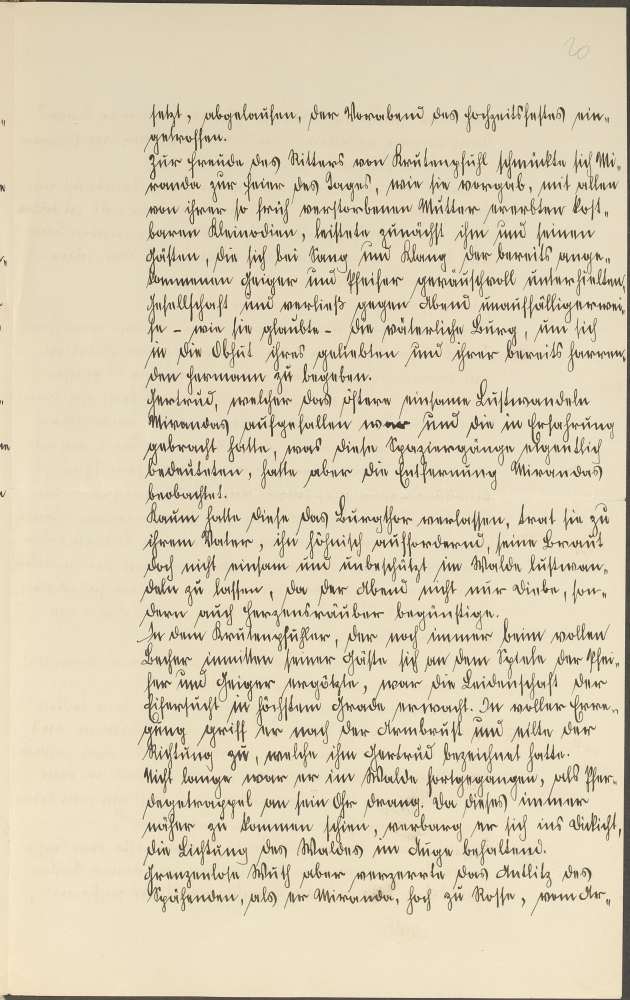 20
setzt, abgelaufen, der Vorabend des Hochzeitsfestes ein-
getroffen.
Zur Freude des Ritters von Krutenpfuhl schmückte sich Mi-
randa zur Feier des Tages, wie sie vorgab, mit allen
von ihrer so früh verstorbenen Mutter ererbten kost-
baren Kleinodien, leistete zunächst ihm und seinen
Gästen, die sich bei Sang und Klang der bereits ange-
kommenen Geiger und Pfeifer geräuschvoll unterhielten,
Gesellschaft und verließ gegen Abend unauffälligerwei-
se – wie sie glaubte – die väterliche Burg, um sich
in die Obhut ihres geliebten und ihrer bereits harren-
den Hermann zu begeben.
Gertrud, welcher das öftere einsame Lustwandeln
Mirandas aufgefallen war und die in Erfahrung
gebracht hatte, was diese Spaziergänge eigentlich
bedeuteten, hatte aber die Entfernung Mirandas
beobachtet.
Kaum hatte diese das Burgthor verlassen, trat sie zu
ihrem Vater, ihn höhnisch auffordernd, seine Braut
doch nicht einsam und unbeschützt im Walde lustwan-
deln zu lassen, da der Abend nicht nur Diebe, son-
dern auch Herzensräuber begünstige.
In dem Krutenpfuhler, der noch immer beim vollen
Becher inmitten seiner Gäste sich an dem Spiele der Pfei-
fer und Geiger ergötzte, war die Leidenschaft der
Eifersucht in höchstem Grade erwacht. In voller Erre-
gung griff er nach der Armbrust und eilte der
Richtung zu, welche ihm Gertrud bezeichnet hatte.
Nicht lange war er im Walde fortgegangen, als Pfer-
degetrappel an sein Ohr drang. Da dieses immer
näher zu kommen schien, verbarg er sich ins Dickicht,
die Lichtung des Waldes im Auge behaltend.
Grenzenlose Wuth aber verzerrte das Antlitz des
Spähenden, als er Miranda, hoch zu Rosse, vom Ar-